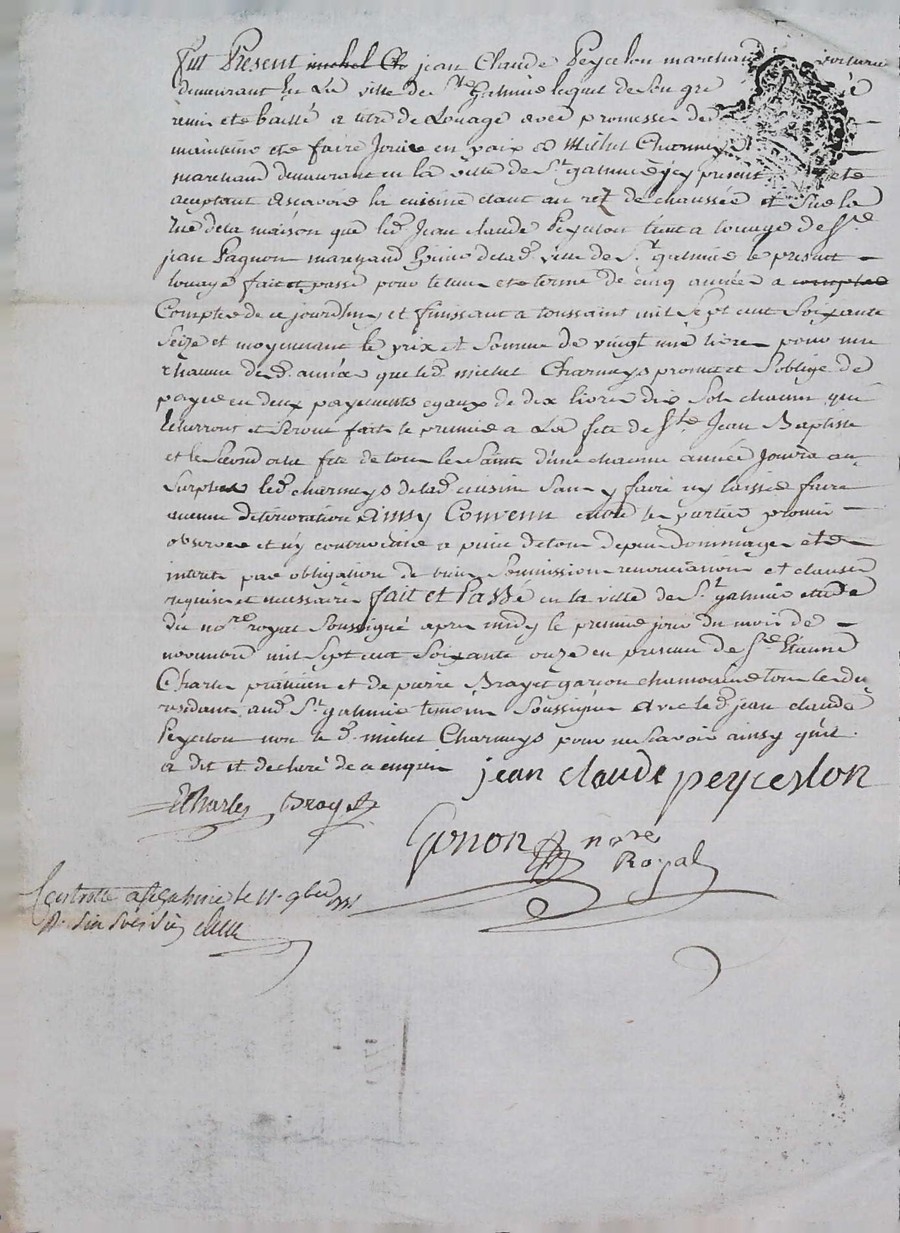 Fut Present michel Ch jean Claude Peycelon marchand voiturie
demeurant en La ville de St Galmier lequel de Son gre
remis et baillé a titre de Louage avec promesse de
maintenir et faire Jouir en paix a Michel Charmeys
marchand demeurant en la ville de St galmier icy present et
aceptant ascavoir la cuisine etant au rez de chaussée et Sur la
rue de la maison que led. Jean claude Peycelon tient a louage de Sr.
jean Pagnon marchand de lad. ville de St galmier le present
louage fait et passé pour le tems et terme de cinq années a compter
Compter de ce jourdhuy et finissant a toussaint mil Sept cent Soixante
Seize et moyennant le prix et Somme de vingt une livre pour une
chacune desd. années que led. michel Charmeys promet et Soblige de
payer en deux payements egaux de dix livres dix Sols chacun qui
echerront et Seront faits le premier a La fete de St Jean Baptiste
et le Second a la fete de tous les Saints d'une chacune année Jouira au
Surplus led. charmeys de lad. cuisine Sans y faire ny laisser faire
aucune deterioration Ainsy Convenu entre les parties promis
observer et n'y contrevenir a peine de tous depens dommages et
interets par obligation de biens Soumission renonciation et clauses
requises et necessaires fait et Passé en la ville de St galmier etude
du nore royal Soussigné apres midy le premier jour du mois de
novembre mil Sept cent Soixante onze en presence de Sr Etienne
Charles praticien et de pierre Brayet garçon tous deux
residants aud. St galmier temoins Soussignes avec led. jean claude
Peycelon non led. michel Charmeys pour ne Savoir ainsy qu'il
a dit et declaré de ce enquis jean claude peyceslon
Charles Brayet
Gonon nore
Royal
Controllé a St Galmier le 11. 9bre 1771
R. Six Sols Six